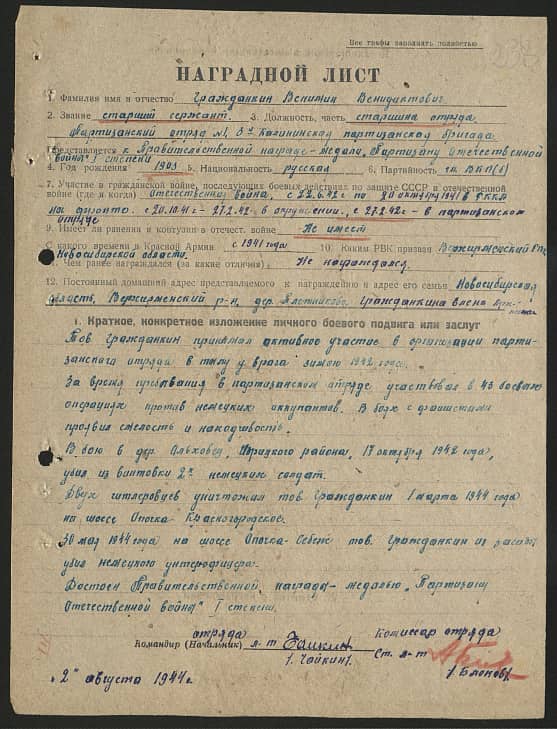 Все графы заполнять полностью
НАГРАДНОЙ ЛИСТ
1. Фамилия имя и отчество Гражданкин Вениамин Венидиктович
2. Звание старший сержант. 3. Должность, часть старшина отряда
Партизанский отряд №1, 8й Калининская партизанская бригада
Представляется к Правительственной награде - медали „Партизану Отечественной
войны" I степени
4. Год рождения 1903 5. Национальность русская 6. Партийность чл. ВКП(б)
7. Участие в гражданской войне, последующих боевых действиях по защите СССР и отечественной
войне (где и когда) Отечественная война, с 22.6.42г по 20 октября 1941 в РККА
на фронте. с 20.10.41г - 27.2.42г - в окружении, с 27.2.42г - в партизанском
отряде
9. Имеет ли ранения и контузии в отечест. войне Не имеет
С какого времени в Красной Армии с 1941 года 10. Каким РВК призван
Новосибирской области.
Чем ранее награжден (за какие отличия) Не награждался.
12. Постоянный домашний адрес представляемого к награждению и адрес его семьи Новосибирская
область, р-н, дер. Плотниково. Гражданкина Елена
1. Краткое, конкретное изложение личного боевого подвига или заслуг
Тов Гражданкин принимал активное участие в организации парти-
занского отряда в тылу у врага зимою 1942 года.
За время пребывания в партизанском отряде участвовал в 43 боевых
операциях против немецких оккупантов. В боях с фашистами
проявил смелость и находчивость.
В бою в дер. Ольховец, района, 17 октября 1942 года,
убил из винтовки 2х немецких солдат.
Двух гитлеровцев уничтожил тов. Гражданкин 1 марта 1944 года
на шоссе Опочка-Красногородское.
30 мая 1944 года на шоссе Опочка-Себеж тов. Гражданкин из засады
убил немецкого унтерофицера.
Достоин Правительственной награды - медалью „Партизану
Отечественной войны" I степени.
отряда Комиссар отряда
Командир (Начальник) л-т Чайкин Ст. л-т
/Чайкин/
/Блонов/
„2" августа 1944 г.